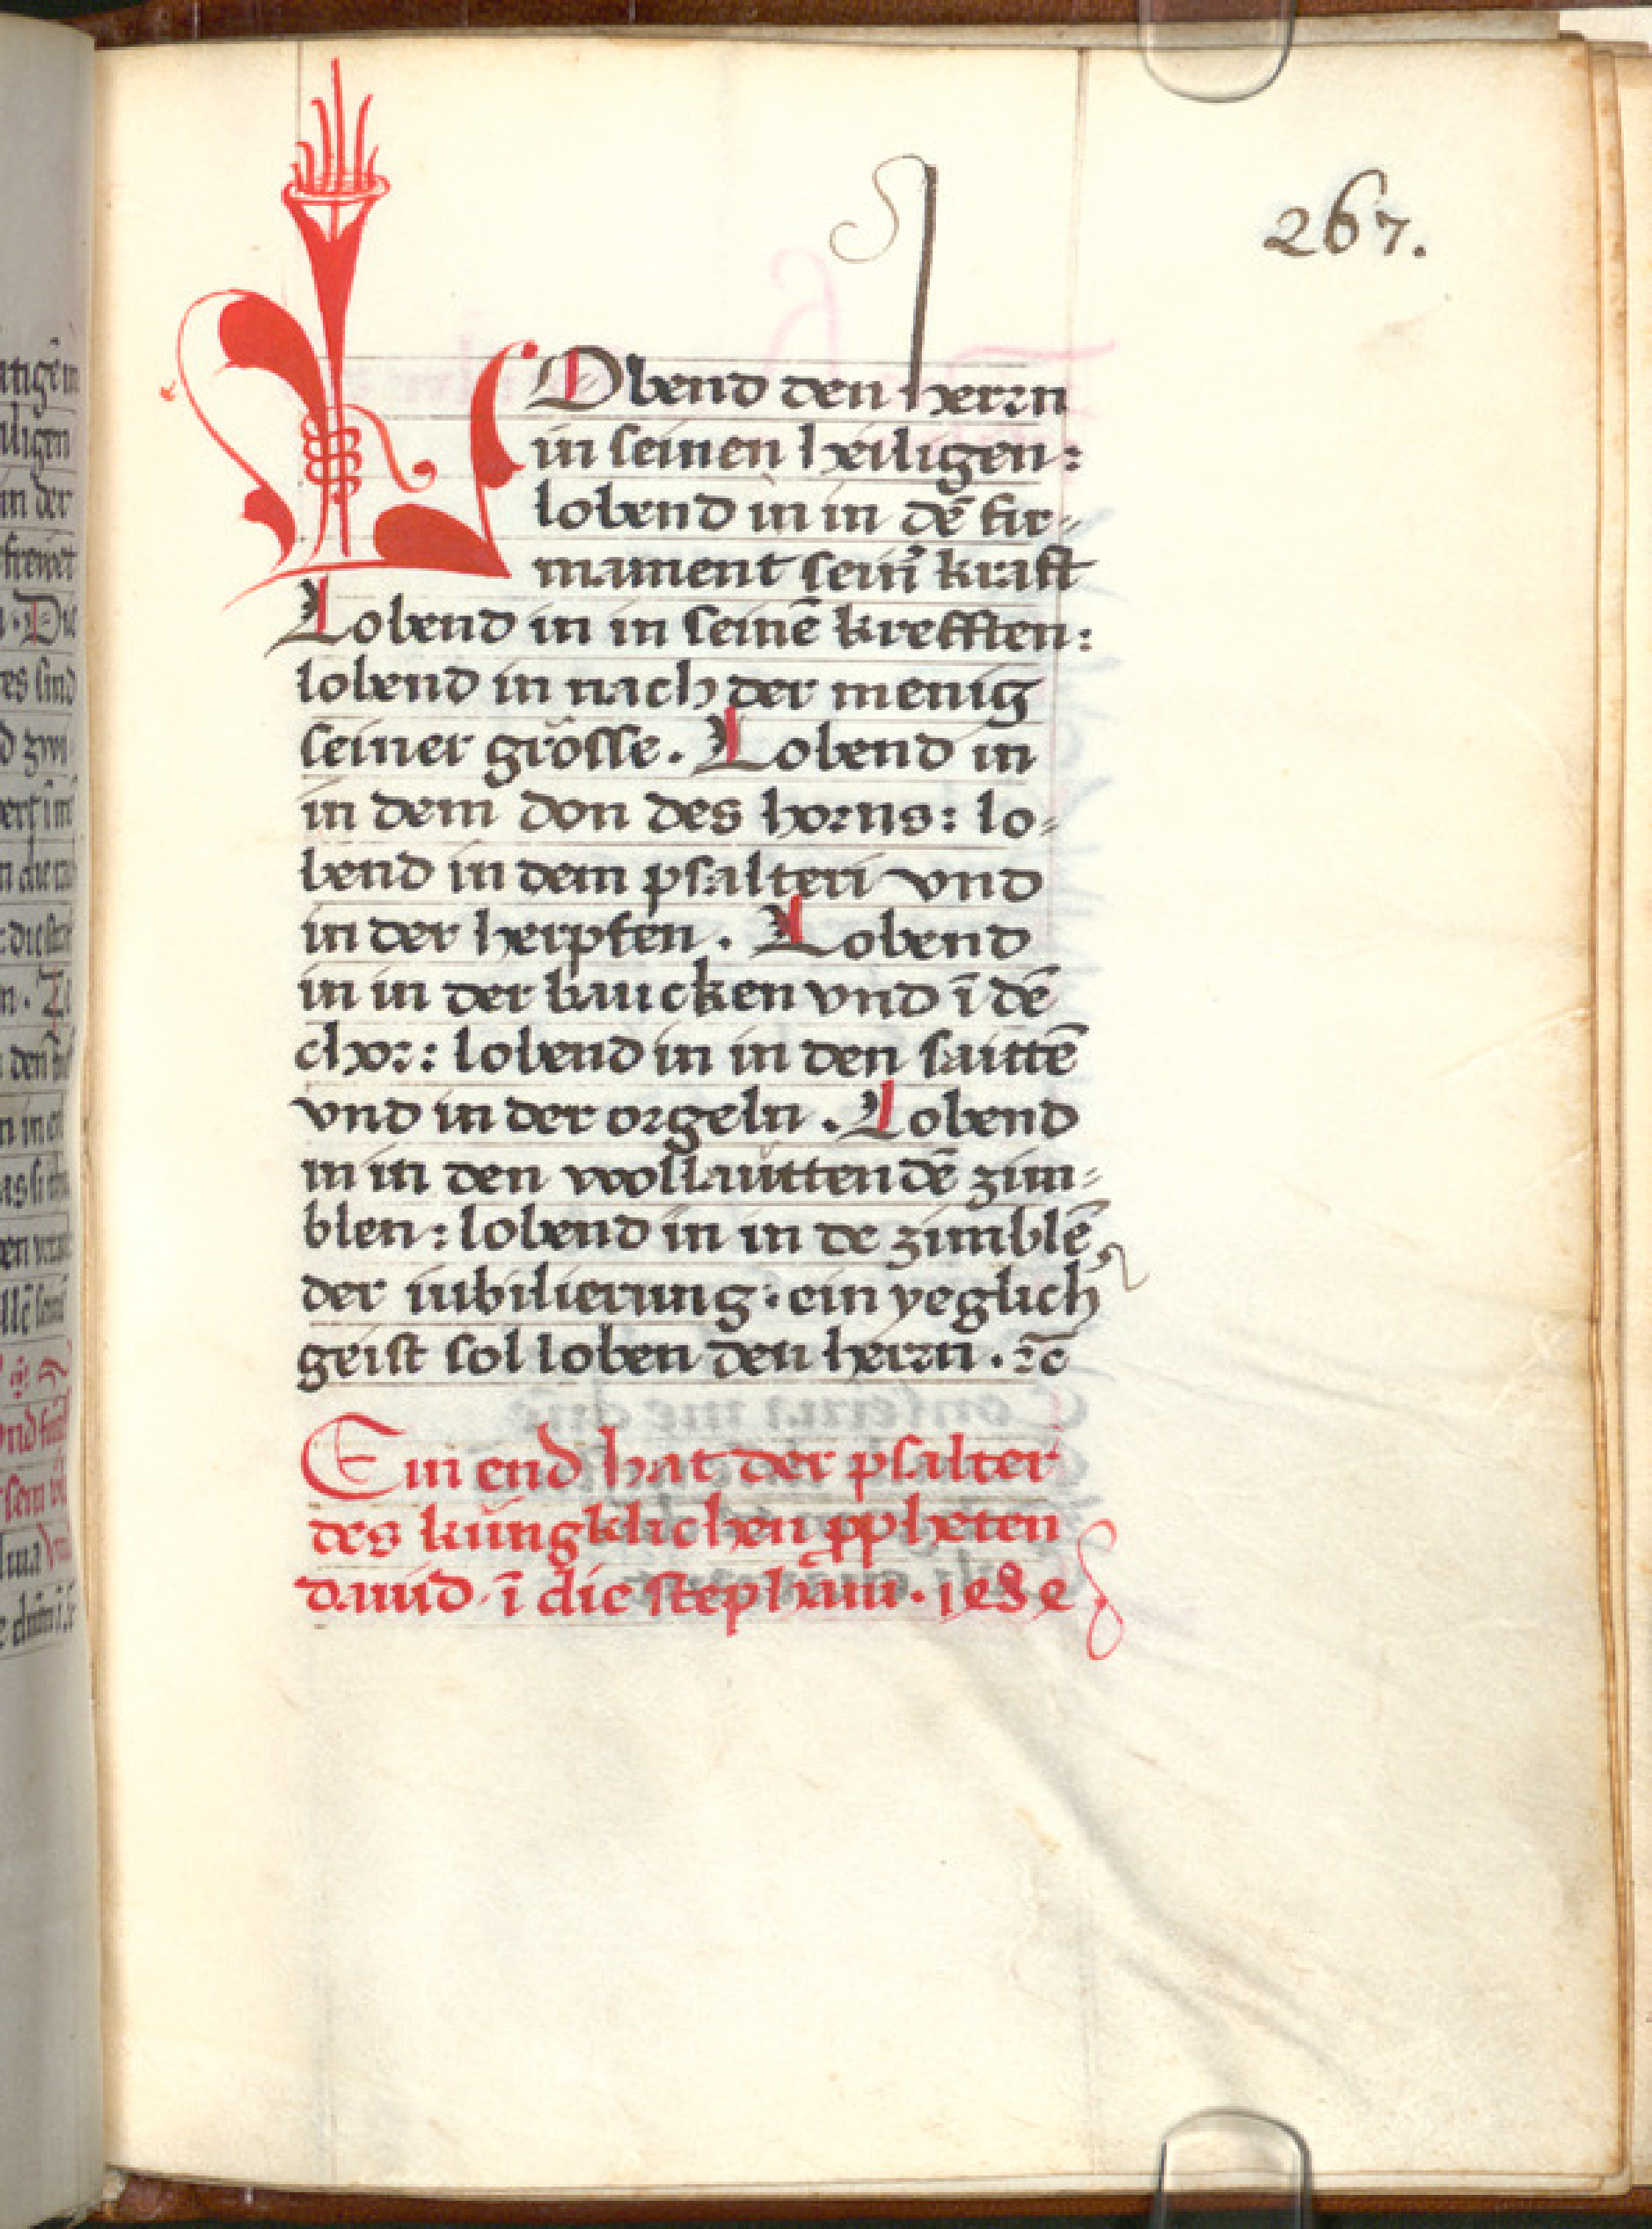 267.
LObend den herrn
in seinen heiligen:
lobend in in dē fir-
mament sein̄ krafft
Lobend in in seinē krefften:
lobend in nach der menig
seiner grösse. Lobend in
in dem don des horns: lo-
bend in dem psalteri vnd
in der herpfen. Lobend
in in der baucken vnd ī dē
chor: lobend in in den saittē
vnd in der orgeln. Lobend
in in den wollauttendē zim-
blen: lobend in in dē zimblē
der iubilierung: ein yeglich
geist sol loben den herrn. ⁊c̄
Ein end hat der psalter
des küngklichen ꝓpheten
dauid ī die stephani.